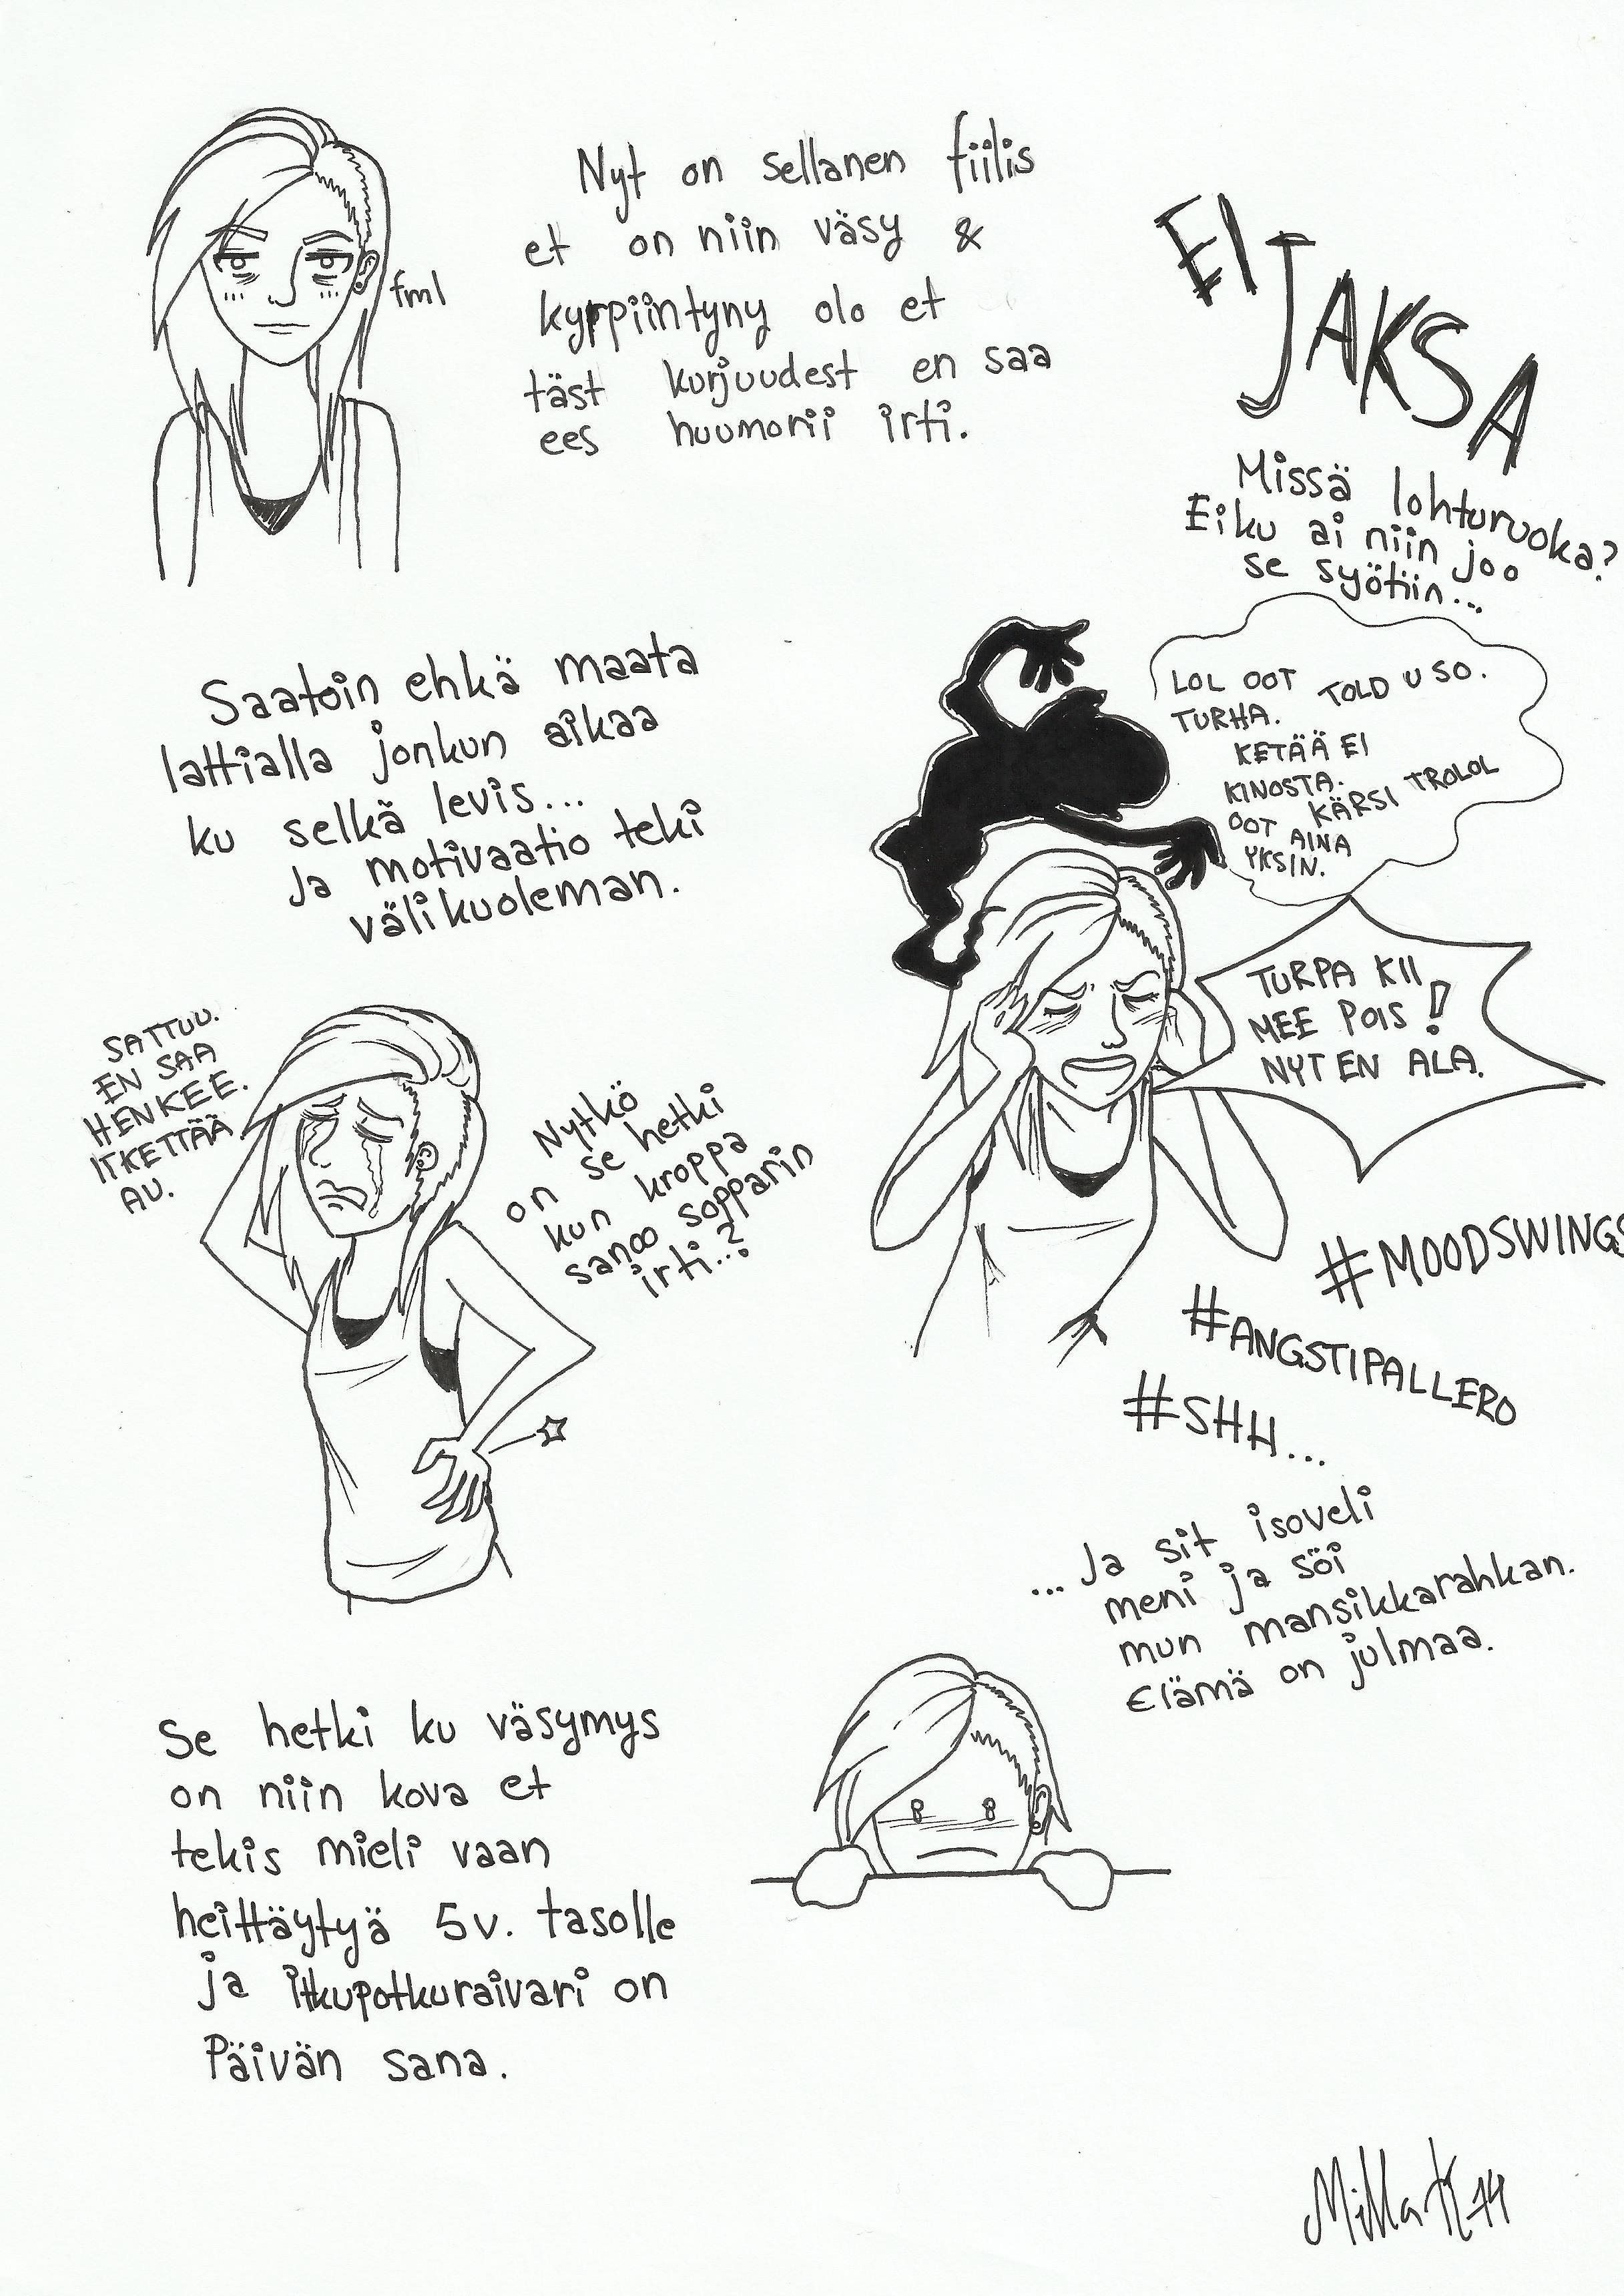 Nyt on sellanen fiilis
et on niin väsy &
kyrpiintyny olo et
täst kurjuudest en saa
ees huumorii irti.
fml
EI
JAKSA
Missä lohturuoka?
Eiku ai niin joo
se syötiin...
Saatoin ehkä maata
lattialla jonkun aikaa
ku selkä levis...
Ja motivaatio teki
välikuoleman.
LOL OOT
TURHA.
TOLD U SO.
KETÄÄ EI
KINOSTA.
KÄRSI TROLOL
OOT AINA
YKSIN.
TURPA KII
MEE POIS!
NYT EN ALA.
SATTUU.
EN SAA
HENKEE.
ITKETTÄÄ
AU.
Nytkö
on se hetki
kun kroppa
sanoo sopparin
irti..?
#MOODSWINGS
#ANGSTIPALLERO
#SHH...
...Ja sit isoveli
meni ja söi
mun mansikkarahkan.
Elämä on julmaa.
Se hetki ku väsymys
on niin kova et
tekis mieli vaan
heittäytyä 5v. tasolle
ja itkupotkuraivari on
Päivän sana.
Milla K 14